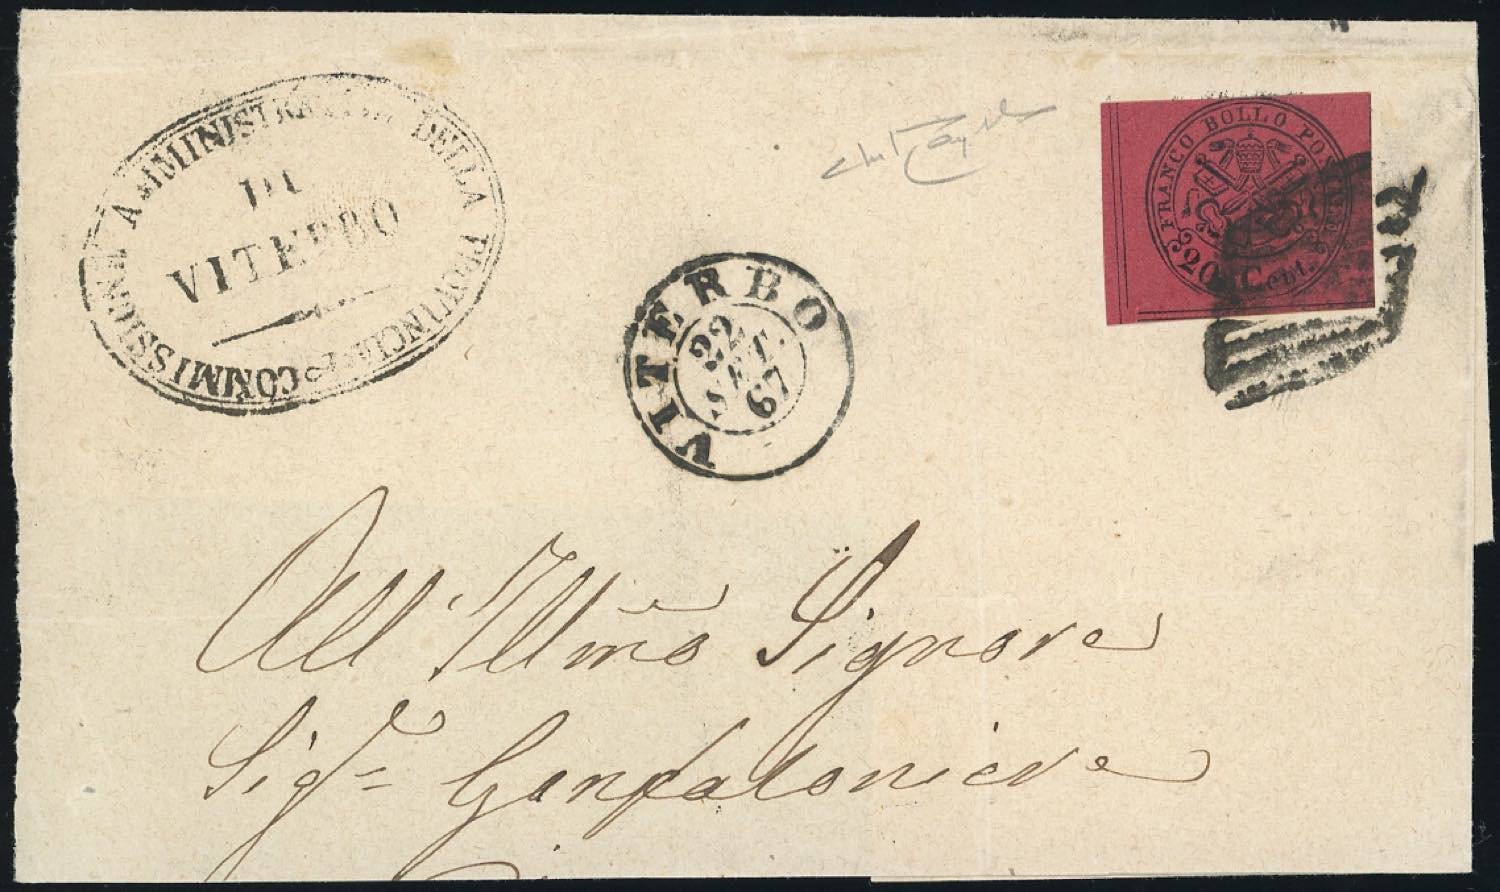 COMMISSIONE AMMINISTRATIVA DELLA PROVINCIA
DI
VITERBO
FRANCO BOLLO POSTALE
20 Cent.
VITERBO
22
SET.
67
All' Illmo Signore
Sigr Gonfaloniere